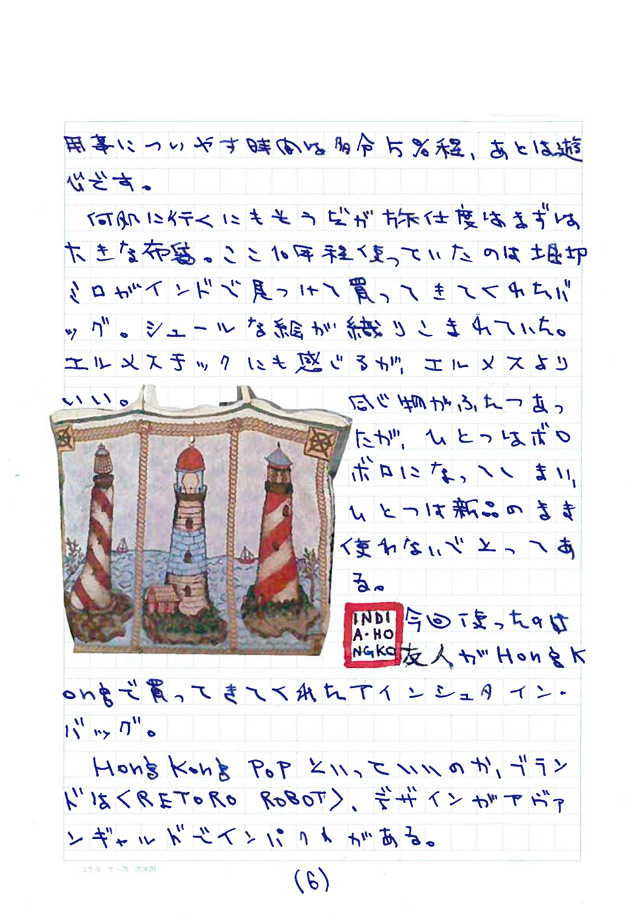 用事についやす時間は多分5%程、あとは遊
びです。
何処に行くにもそうだが旅仕度はまずは
大きな布袋。ここ10年程使っていたのは堀切
ミロがインドで見つけて買ってきてくれたバ
ッグ。シュールな絵が織りこまれていた。
エルメスチックにも感じるが、エルメスより
いい。
同じ物がふたつあっ
たが、ひとつはボロ
ボロになってしまい、
ひとつは新品のまま
使わないでとってあ
る。
INDI
A・HO
NGKO
今回使ったのは
友人がHong K
ongで買ってきてくれたアインシュタイン・
バッグ。
Hong Kong POPといっていいのか、ブラン
ドは<RETORO ROBOT>、デザインがアヴァ
ンギャルドでインパクトがある。
コクヨ ケ-75 20×20
(6)